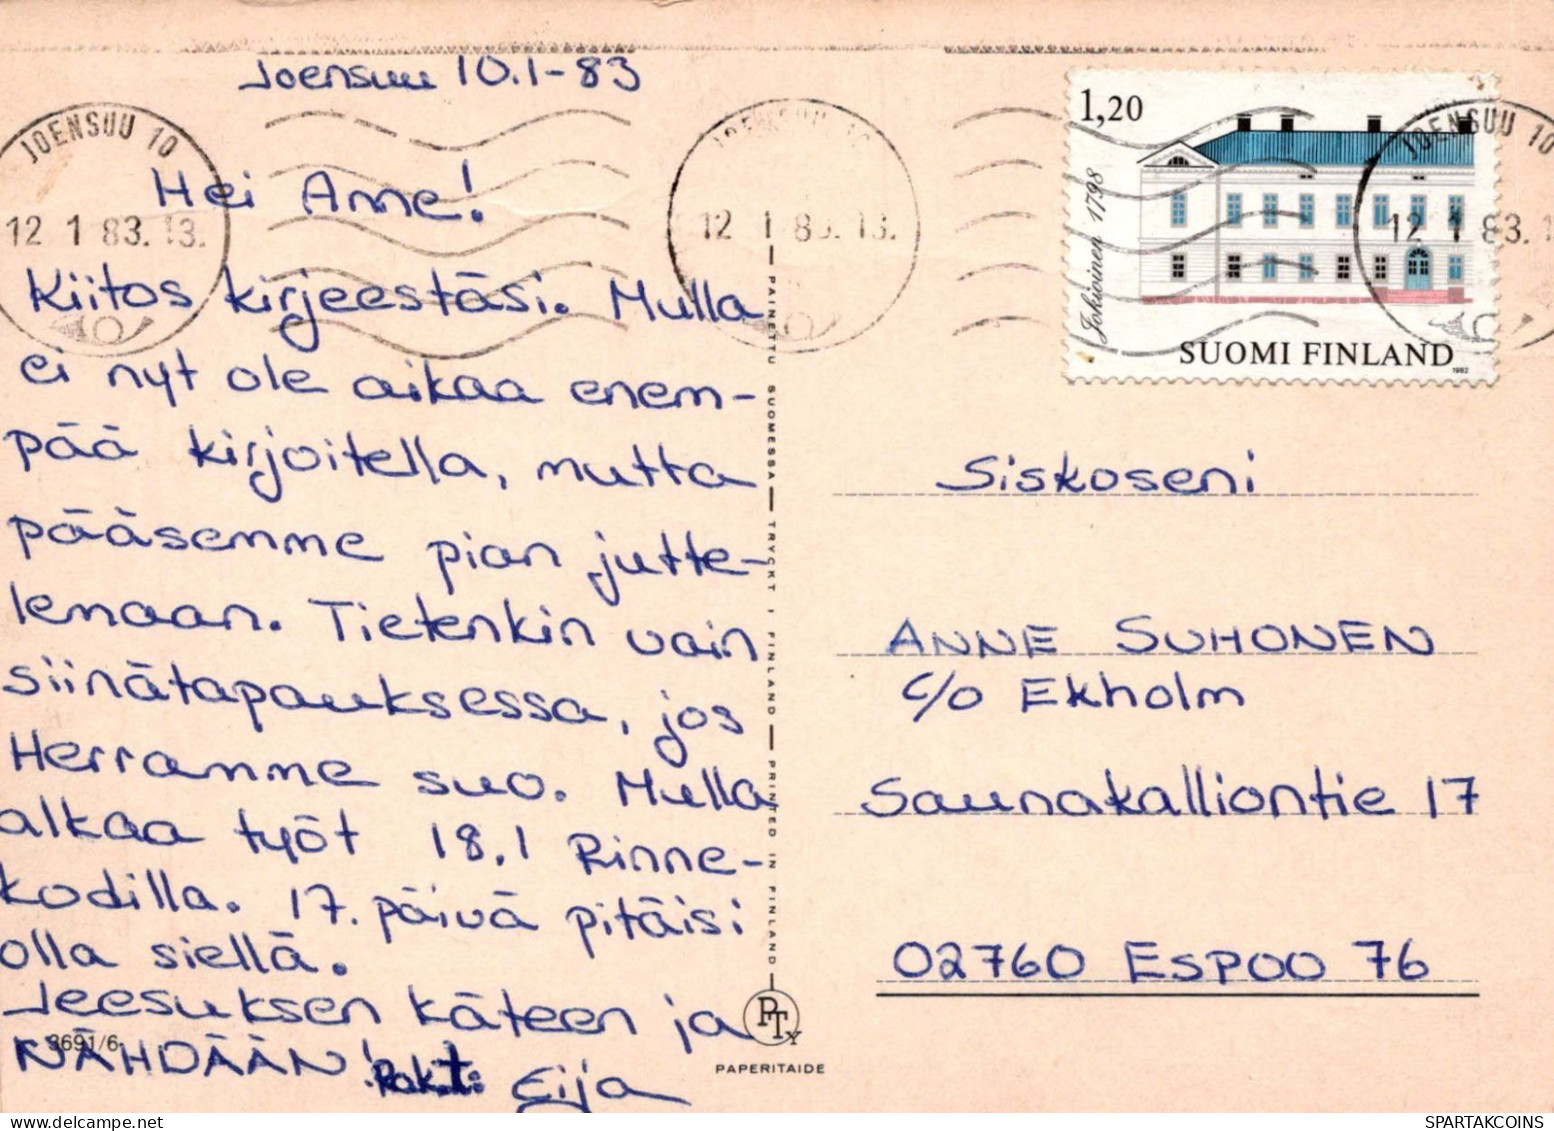 Joensuu 10.1-83
JOENSUU 10
12 1 83. 13.
JOENSUU 10
12 1 83. 13.
JOENSUU 10
12 1 83. 1
1,20
Jokioinen 1798
SUOMI FINLAND
1982
Hei Anne!
Kiitos kirjeestäsi. Mulla
ei nyt ole aikaa enem-
pää kirjoitella, mutta
pääsemme pian jutte-
lemaan. Tietenkin vain
siinätapauksessa, jos
Herramme suo. Mulla
alkaa työt 18.1 Rinne-
kodilla. 17. päivä pitäisi
olla siellä.
Jeesuksen käteen ja
NÄHDÄÄN! Rak.t: Eija
3691/6
PAINETTU SUOMESSA — TRYCKT I FINLAND — PRINTED IN FINLAND
PTY
PAPERITAIDE
Siskoseni
ANNE SUHONEN
c/o Ekholm
Saunakalliontie 17
02760 ESPOO 76
SPARTAKCOINS